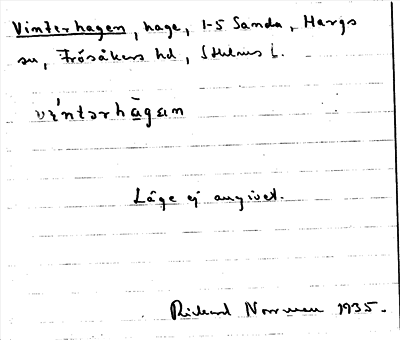 Vinterhagen, hage, 1-5 Sanda, Hargs
sn, Frösåkers hd, Sthlms l.
víntərhàgan
Läge ej angivet.
Rickard Norrman 1935.